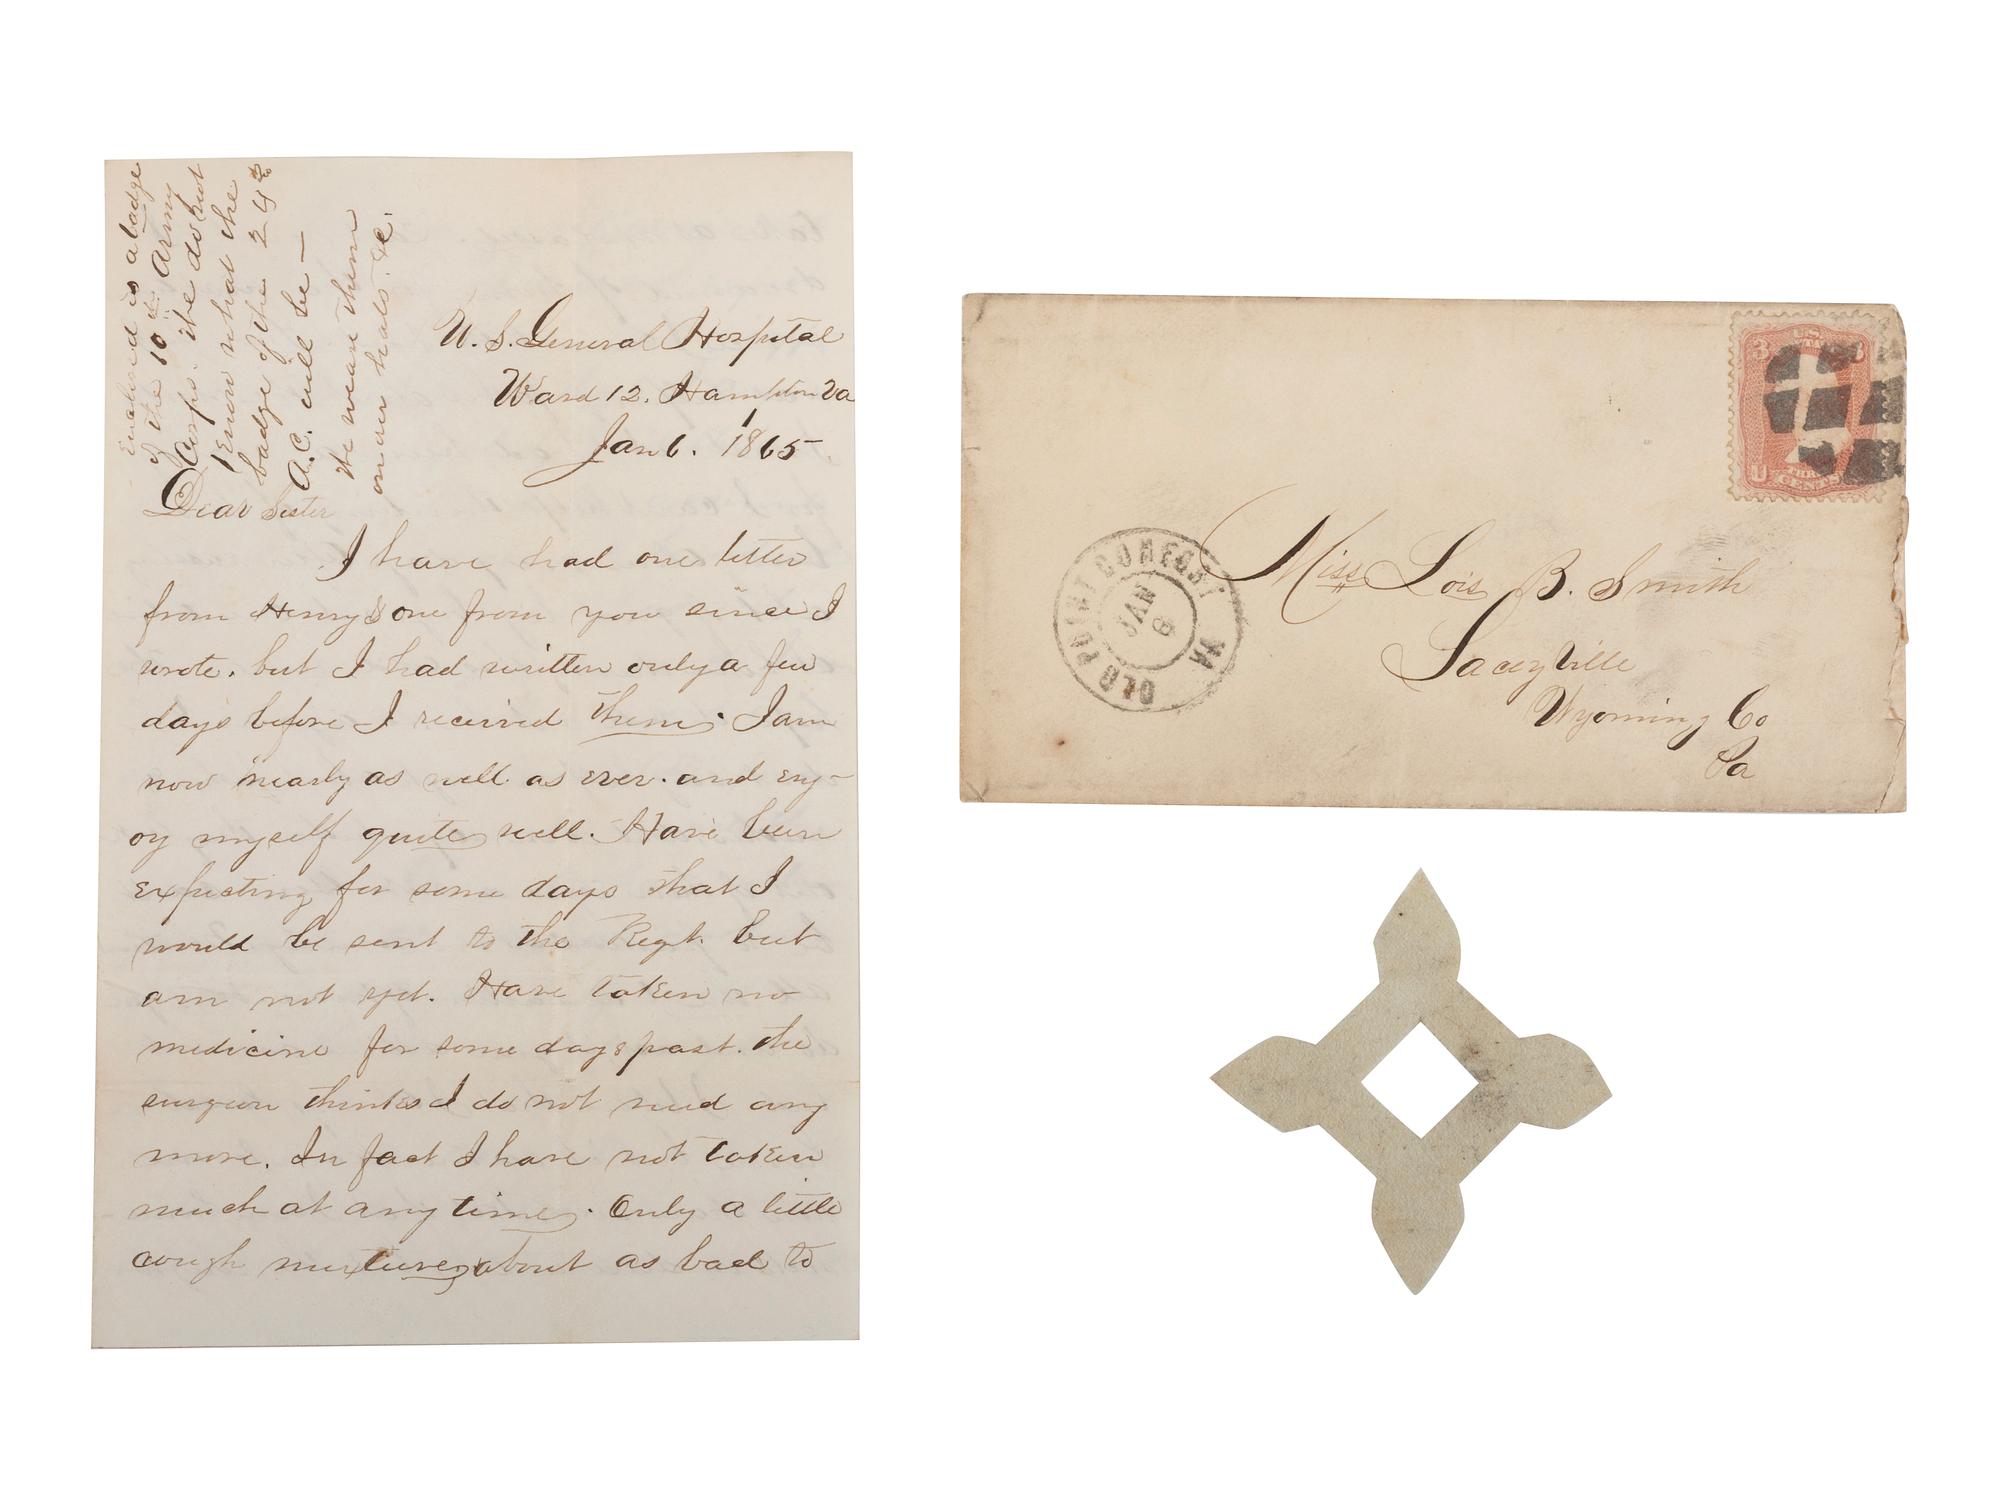 Enclosed is a badge
of the 10th Army
Corps. We do not
know what the
badge of the 24th
A.C. will be —
We wear them
on our hats. &c.
U. S. General Hospital
Ward 12. Hampton Va
Jan 6. 1865
Dear Sister
I have had one letter
from Henry & one from you since I
wrote. but I had written only a few
days before I received them. I am
now nearly as well as ever. and enj-
oy myself quite well. Have been
expecting for some days that I
would be sent to the Regt. but
am not yet. Have taken no
medicine for some days past. the
surgeon thinks I do not need any
more. In fact I have not taken
much at any time. Only a little
cough mixture, about as bad to
U.S.
3 3
U
THREE
CENTS
OLD POINT COMFORT
VA
JAN
6
Miss Lois B. Smith
Laceyville
Wyoming Co
Pa